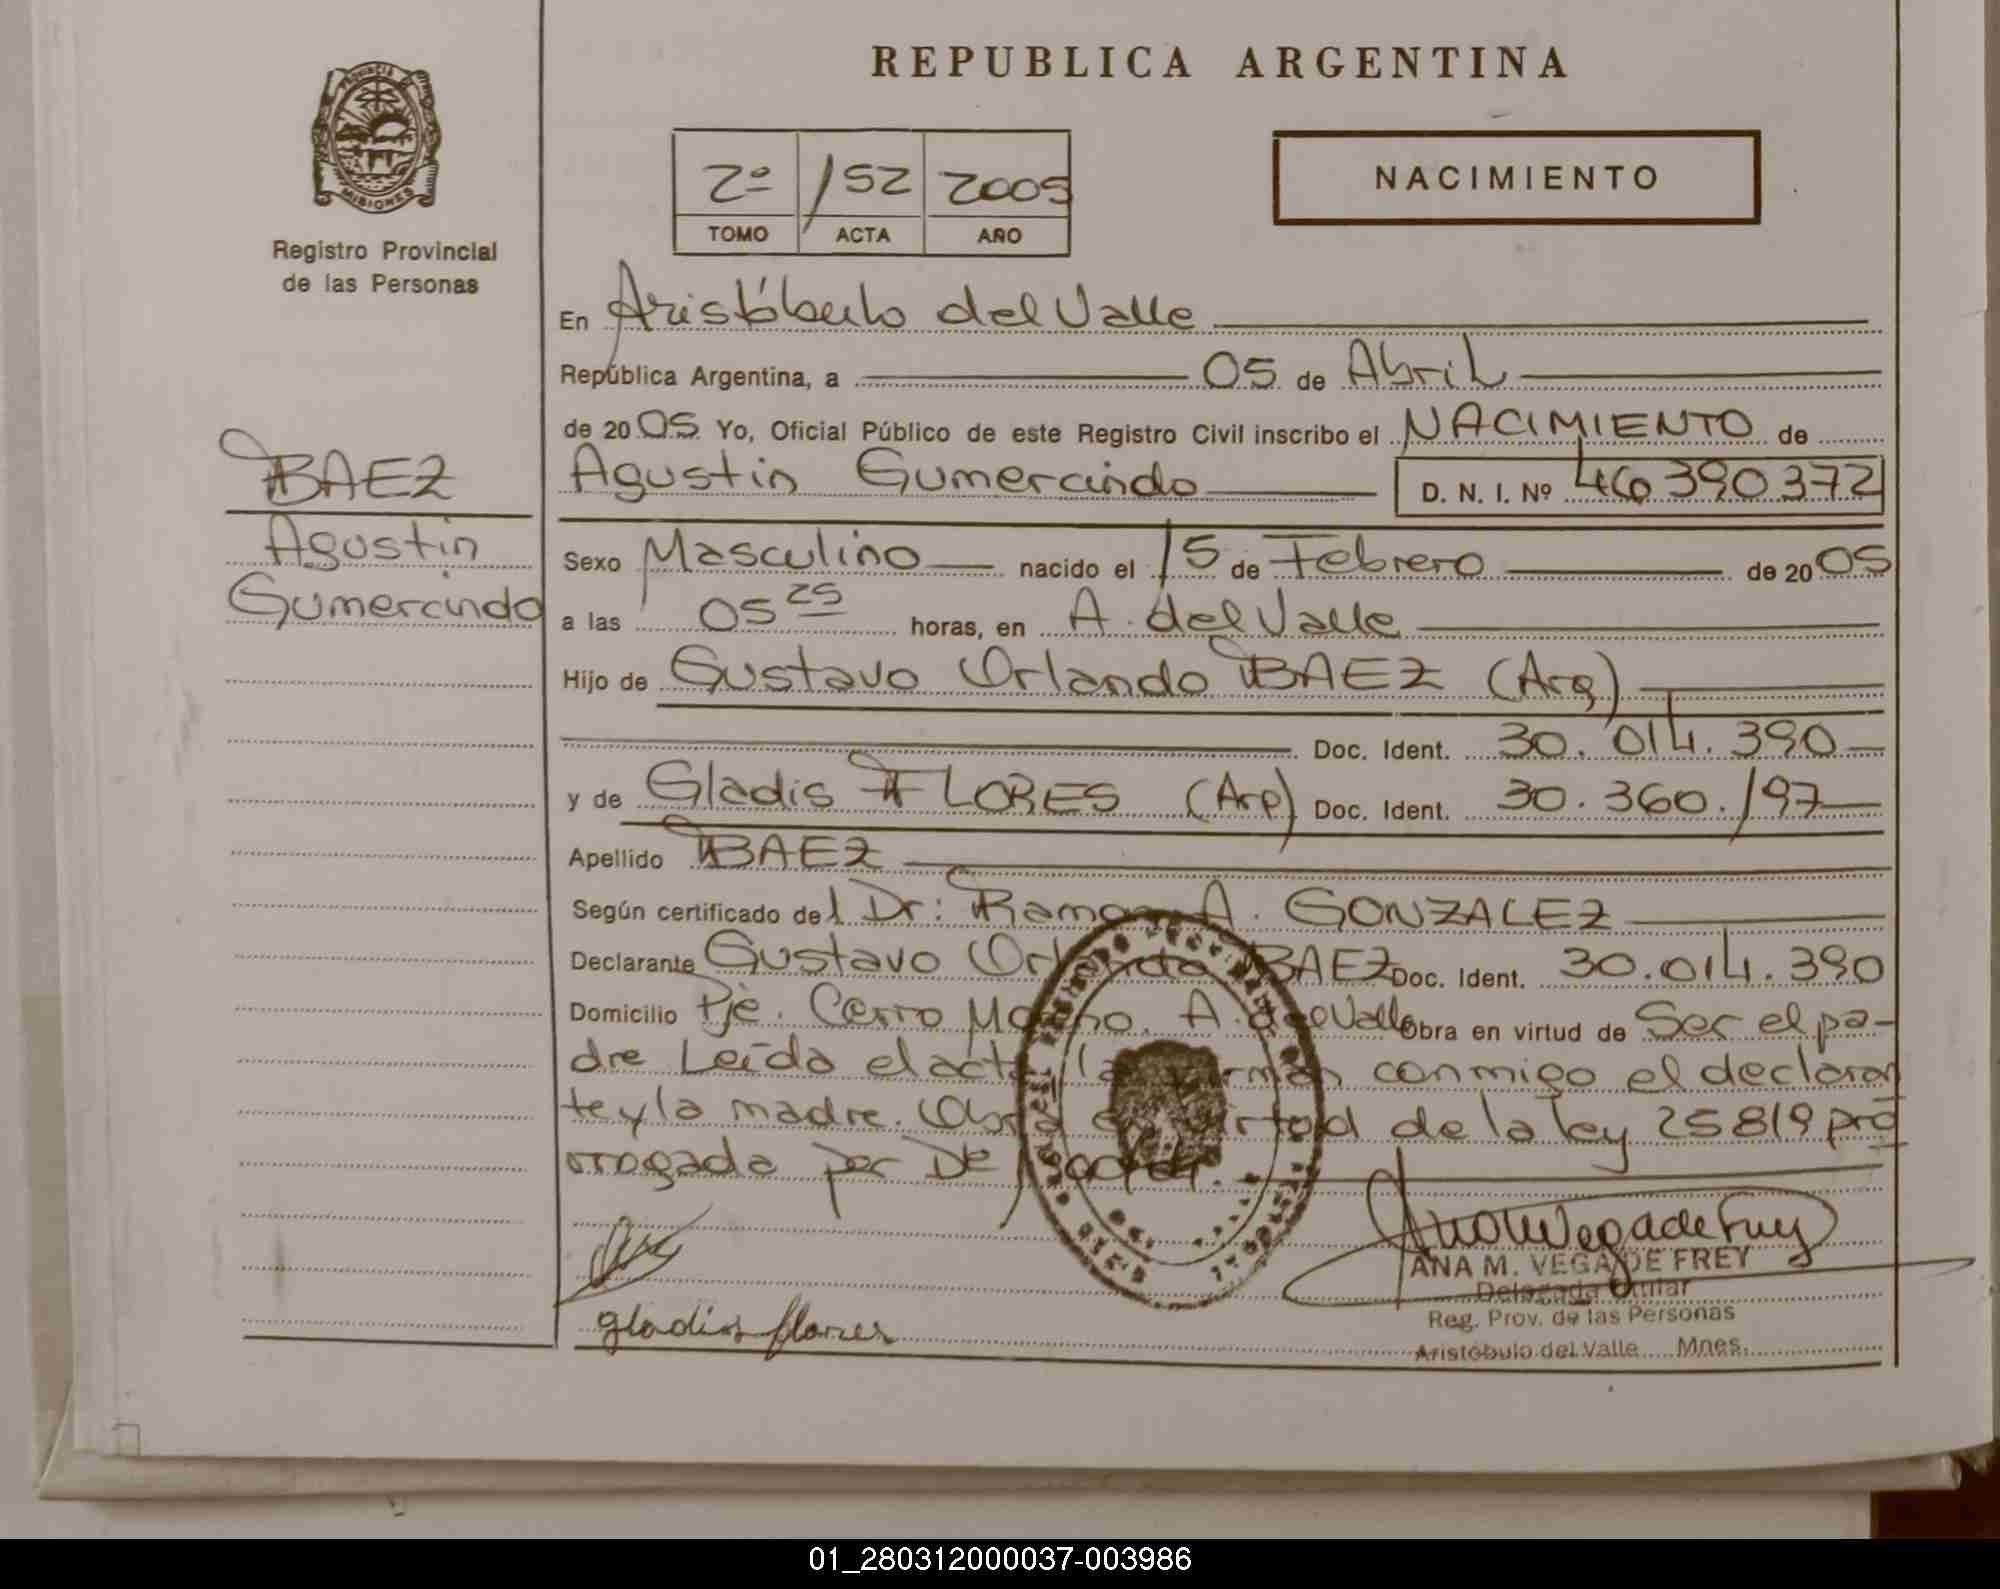 REPUBLICA ARGENTINA
PROVINCIA
MISIONES
Registro Provincial
de las Personas
2º 152 2005
TOMO ACTA AÑO
NACIMIENTO
En Aristóbulo del Valle
República Argentina, a 05 de Abril
de 2005 Yo, Oficial Público de este Registro Civil inscribo el NACIMIENTO de
Agustin Gumercindo D. N. I. Nº 46390372
BAEZ
Agustin
Gumercindo
Sexo Masculino nacido el 15 de Febrero de 2005
a las 05 25 horas, en A. del Valle
Hijo de Gustavo Orlando BAEZ (Arg)
Doc. Ident. 30.014.390
y de Gladis FLORES (Arg) Doc. Ident. 30.360.197
Apellido BAEZ
Según certificado del Dr: Ramon A. GONZALEZ
Declarante Gustavo Orlando BAEZ Doc. Ident. 30.014.390
Domicilio Pje. Cerro Moreno. A. del Valle Obra en virtud de Ser el pa-
dre Leída el acta la firman conmigo el declaran
te y la madre. Obra en virtud de la ley 25819 pro
rrogada por
gladis flores
Ana M Vega de Frey
ANA M. VEGA DE FREY
Delegada Titular
Reg. Prov. de las Personas
Aristóbulo del Valle Mnes.
01_280312000037-003986